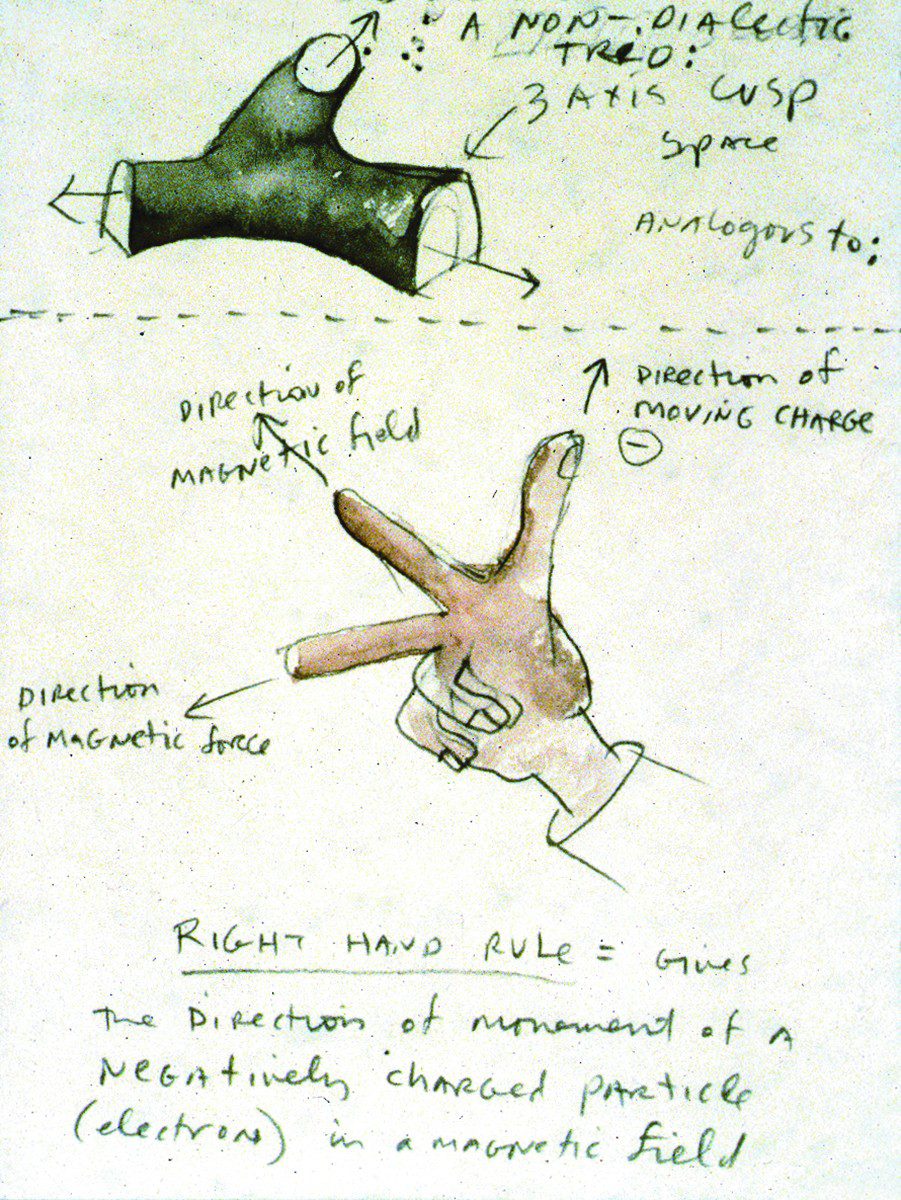 A NON-DIALECTIC
3 AXIS CUSP
SPACE
ANALOGOUS to:
DIRECTION of
MAGNETIC field
DIRECTION of
MOVING CHARGE
−
DIRECTION
of MAGNETIC force
RIGHT HAND RULE = GIVES
THE DIRECTION of movement of A
NEGATIVELY CHARGED PARTICLE
(electron) in a MAGNETIC field